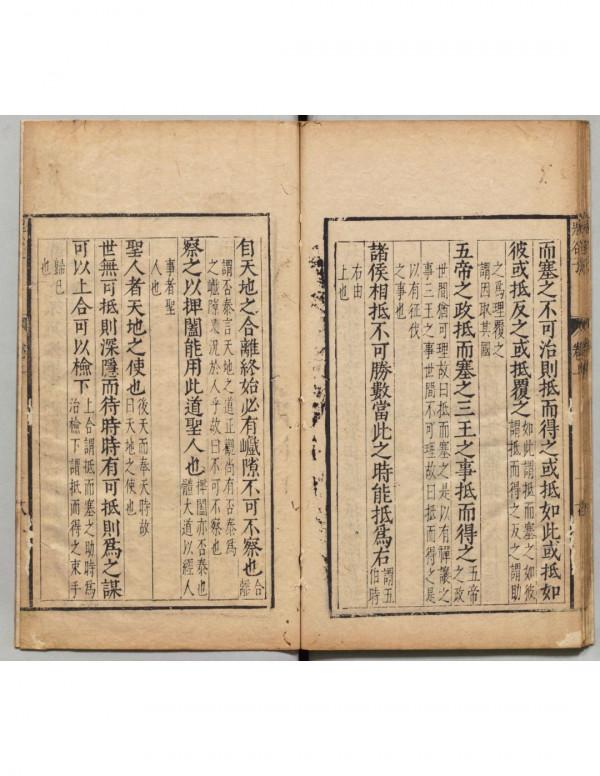 而塞之不可治則抵而得之或抵如此或抵如
彼或抵反之或抵覆之如此謂抵而塞之如彼
謂抵而得之反之謂助
之為理覆之
謂因取其國
五帝之政抵而塞之三王之事抵而得之五帝
之政
世間猶可理故曰抵而塞之是以有禪讓之
事三王之事世間不可理故曰抵而得之是
以有征伐
之事也
諸侯相抵不可勝數當此之時能抵爲右謂五
伯時
右由
上也
自天地之合離終始必有巇隙不可不察也合
離
謂否泰言天地之道正觀尚有否泰爲
之巇隙況於人乎故曰不可不察也
察之以捭闔能用此道聖人也捭闔亦否泰也
體大道以經人
事者聖
人也
聖人者天地之使也後天而奉天時故
曰天地之使也
世無可抵則深隱而待時時有可抵則爲之謀
可以上合可以檢下上合謂抵而塞之助時爲
治檢下謂抵而得之束手
歸己
也